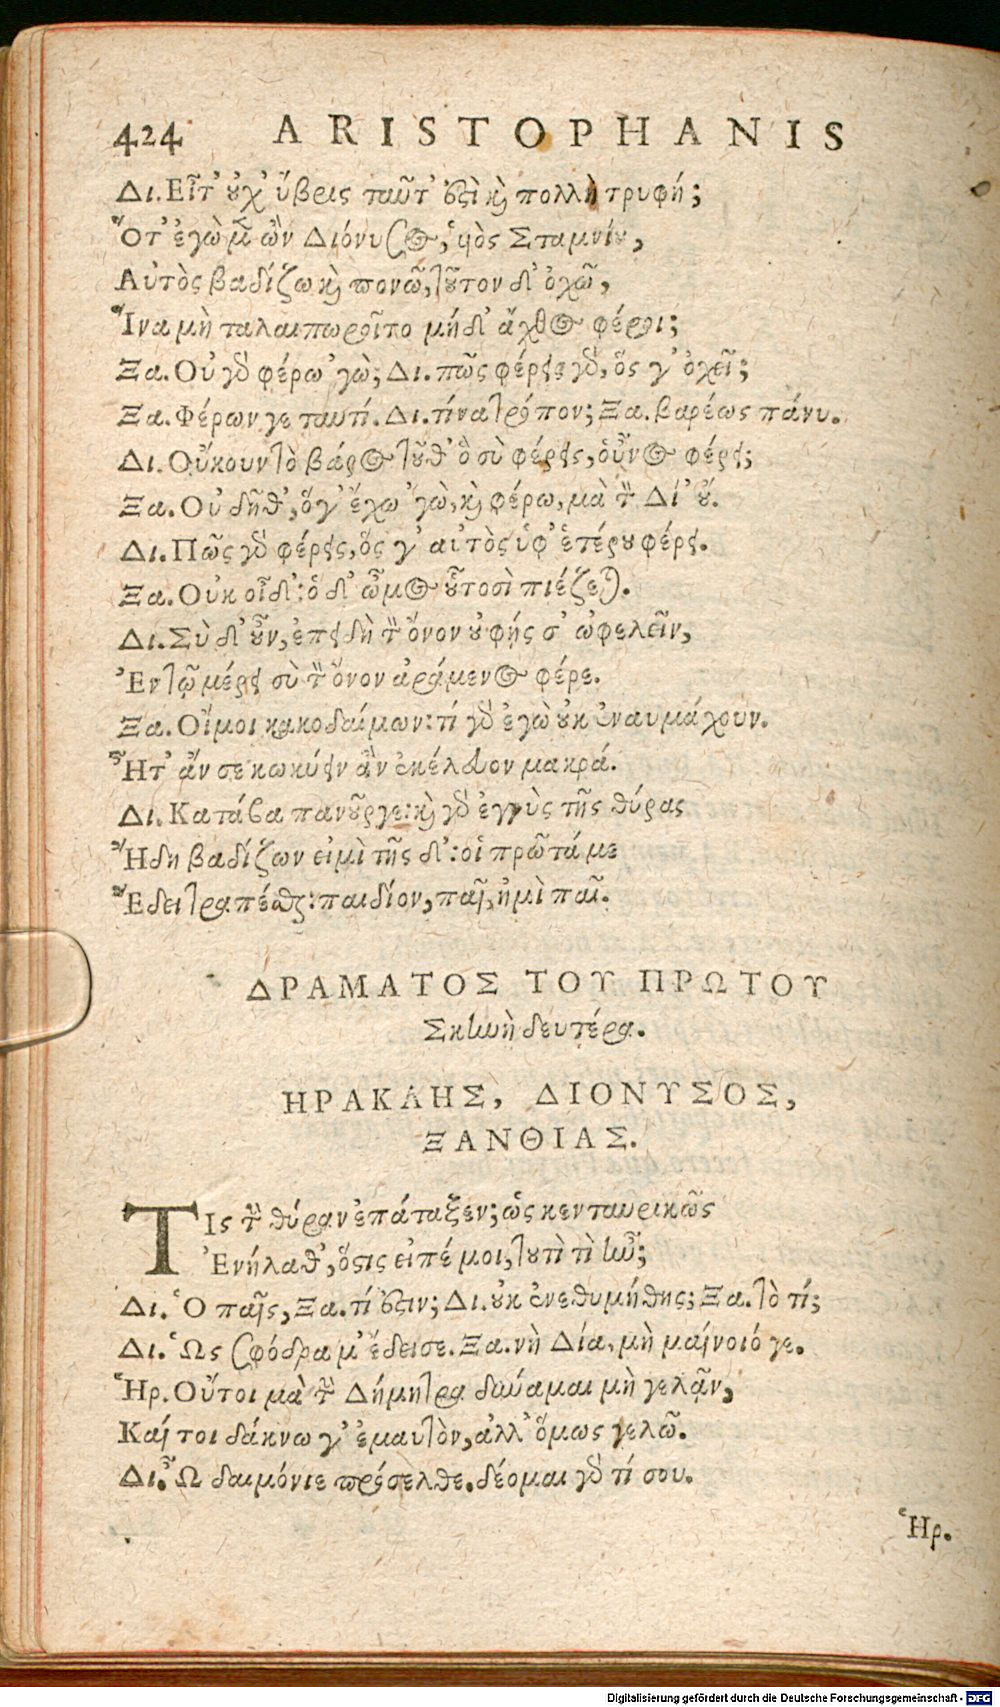 424 ARISTOPHANIS
Δι. Εἶτ' οὐχ' ὕβρις ταῦτ' ἐστὶ καὶ πολλὴ τρυφή;
Ὅτ' ἐγὼ μὲν ὢν Διόνυσος, ὑὸς Σταμνίου,
Αὐτὸς βαδίζω καὶ πονῶ, τοῦτον δ' ὀχῶ,
Ἵνα μὴ ταλαιπωροῖτο μήδ' ἄχθος φέροι;
Ξα. Οὐ γὰρ φέρω 'γὼ; Δι. πῶς φέρεις γὰρ, ὅς γ' ὀχεῖ;
Ξα. Φέρων γε ταυτί. Δι. τίνα τρόπον; Ξα. βαρέως πάνυ.
Δι. Οὔκουν τὸ βάρος τοῦθ' ὃ σὺ φέρεις, οὖνος φέρει;
Ξα. Οὐ δῆθ', ὅγ' ἔχω 'γὼ, καὶ φέρω, μὰ τὸν Δί' οὔ.
Δι. Πῶς γὰρ φέρεις, ὅς γ' αὐτὸς ὑφ' ἑτέρου φέρει.
Ξα. Οὐκ οἶδ': ὁ δ' ὦμος οὗτοσὶ πιέζεται.
Δι. Σὺ δ' οὖν, ἐπειδὴ τὸν ὄνον οὐ φῄς σ' ὠφελεῖν,
Ἐν τῷ μέρει σὺ τὸν ὄνον ἀράμενος φέρε.
Ξα. Οἴμοι κακοδαίμων: τί γὰρ ἐγὼ οὐκ ἐναυμάχουν.
Ἦτ' ἄν σε κωκύειν ἂν ἐκέλευον μακρά.
Δι. Κατάβα πανοῦργε: καὶ γὰρ ἐγγὺς τῆς θύρας
Ἤδη βαδίζων εἰμὶ τῆς δ': οἱ πρῶτά με
Ἔδει τραπέσθαι: παιδίον, παῖ, ἠμὶ παῖ.
ΔΡΑΜΑΤΟΣ ΤΟΥ ΠΡΩΤΟΥ
Σκηνὴ δευτέρα.
ΗΡΑΚΛΗΣ, ΔΙΟΝΥΣΟΣ,
ΞΑΝΘΙΑΣ.
Τις τὴν θύραν ἐπάταξεν; ὡς κενταυρικῶς
Ἐνήλαθ', ὅστις εἰπέ μοι, τουτὶ τὶ ἦν;
Δι. Ὁ παῖς, Ξα. τί ἐστιν; Δι. οὐκ ἐνεθυμήθης; Ξα. τὸ τί;
Δι. Ὡς σφόδρα μ' ἔδεισε. Ξα. νὴ Δία, μὴ μαίνοιό γε.
Ἡρ. Οὔτοι μὰ τὴν Δήμητρα δύναμαι μὴ γελᾷν,
Καίτοι δάκνω γ' ἐμαυτὸν, ἀλλ' ὅμως γελῶ.
Δι. Ὦ δαιμόνιε πρόσελθε. δέομαι γὰρ τί σου.
Ἡρ.
Digitalisierung gefördert durch die Deutsche Forschungsgemeinschaft - DFG